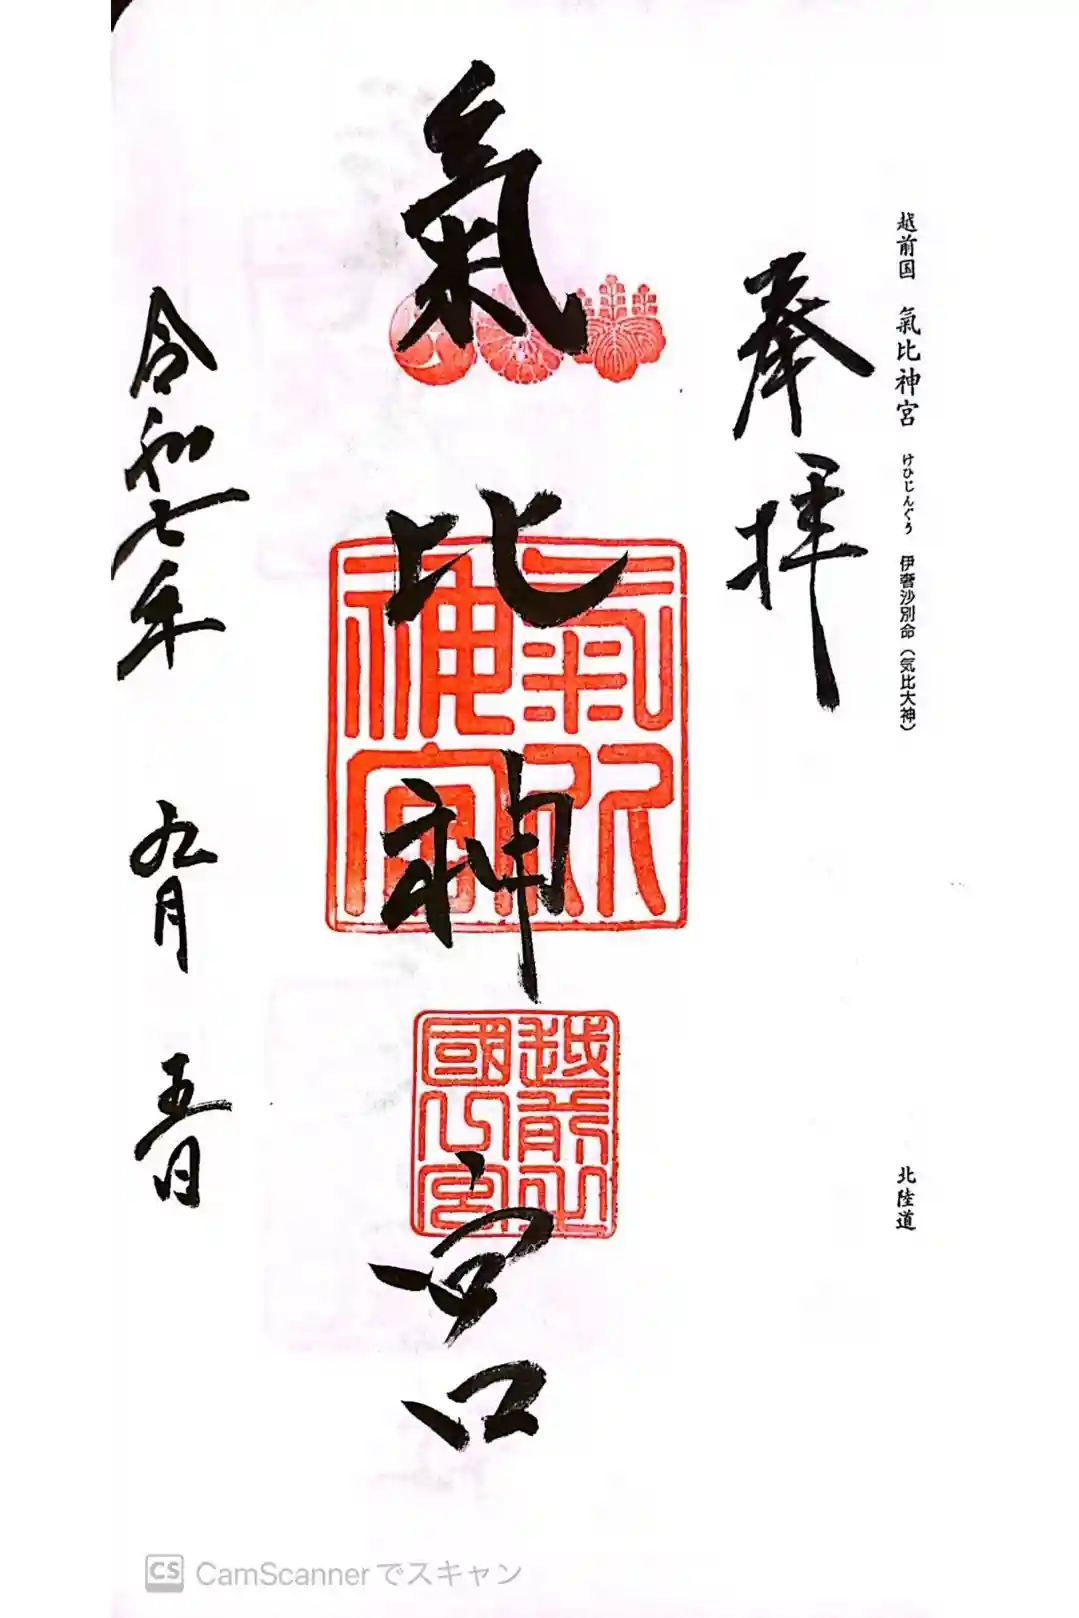 越前国 氣比神宮 けひじんぐう 伊奢沙別命（気比大神）
北陸道
奉拝
氣比神宮
氣比神宮
越前之國一宮
令和七年 九月 五日
CS CamScannerでスキャン